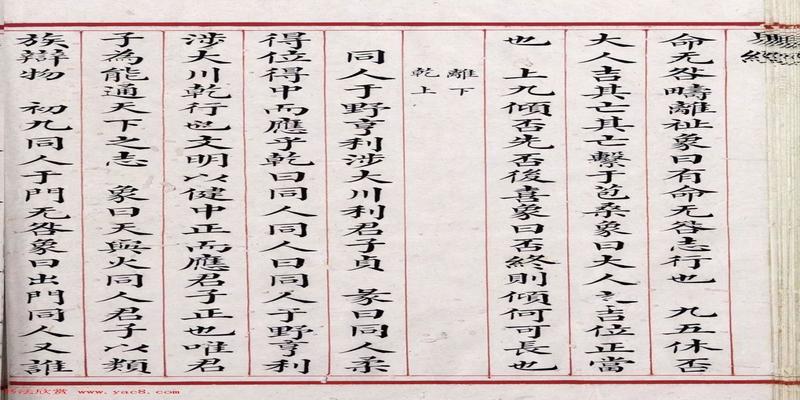 命无咎疇離祉象曰有命无咎志行也 九五休否
大人吉其亡其亡繫于苞桑象曰大人之吉位正當
也 上九傾否先否後喜象曰否終則傾何可長也
離下
乾上
同人于野亨利涉大川利君子貞 彖曰同人柔
得位得中而應乎乾曰同人同人曰同人于野亨利
涉大川乾行也文明以健中正而應君子正也唯君
子為能通天下之志 象曰天與火同人君子以類
族辯物 初九同人于門无咎象曰出門同人又誰
法欣赏 www.yac8.com